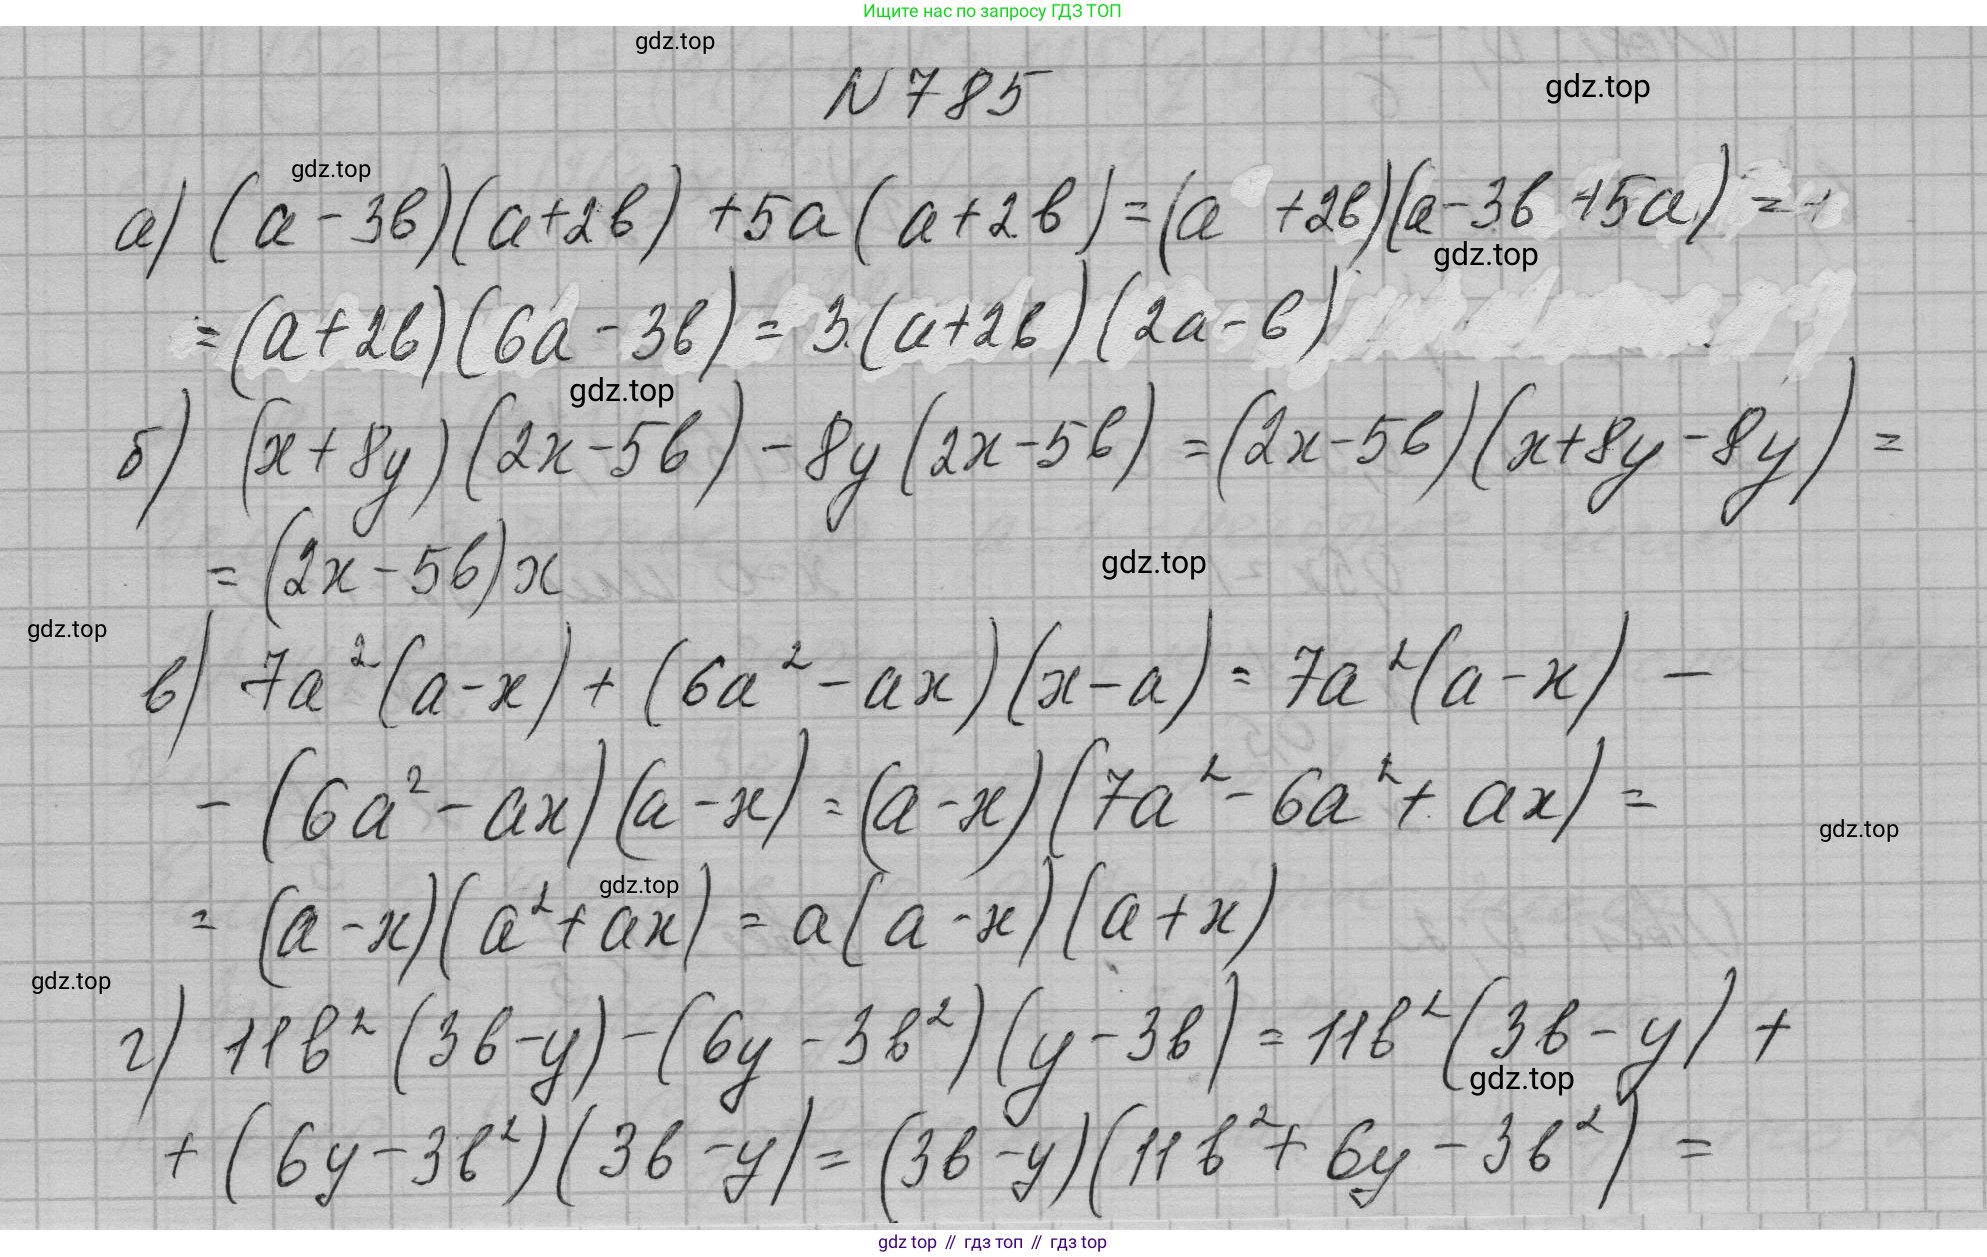 Ищите нас по запросу ГДЗ ТОП
gdz.top
N 785
gdz.top
gdz.top
а) (a - 3b)(a + 2b) + 5a(a + 2b) = (a + 2b)(a - 3b + 5a) =
gdz.top
= (a + 2b)(6a - 3b) = 3(a + 2b)(2a - b)
gdz.top
б) (x + 8y)(2x - 5b) - 8y(2x - 5b) = (2x - 5b)(x + 8y - 8y) =
= (2x - 5b)x
gdz.top
gdz.top
в) 7a² (a - x) + (6a² - ax)(x - a) = 7a² (a - x) -
- (6a² - ax)(a - x) = (a - x)(7a² - 6a² + ax) =
gdz.top
gdz.top
= (a - x)(a² + ax) = a(a - x)(a + x)
gdz.top
г) 11b² (3b - y) - (6y - 3b²)(y - 3b) = 11b² (3b - y) +
gdz.top
+ (6y - 3b²)(3b - y) = (3b - y)(11b² + 6y - 3b²) =
gdz top // гдз топ // gdz top